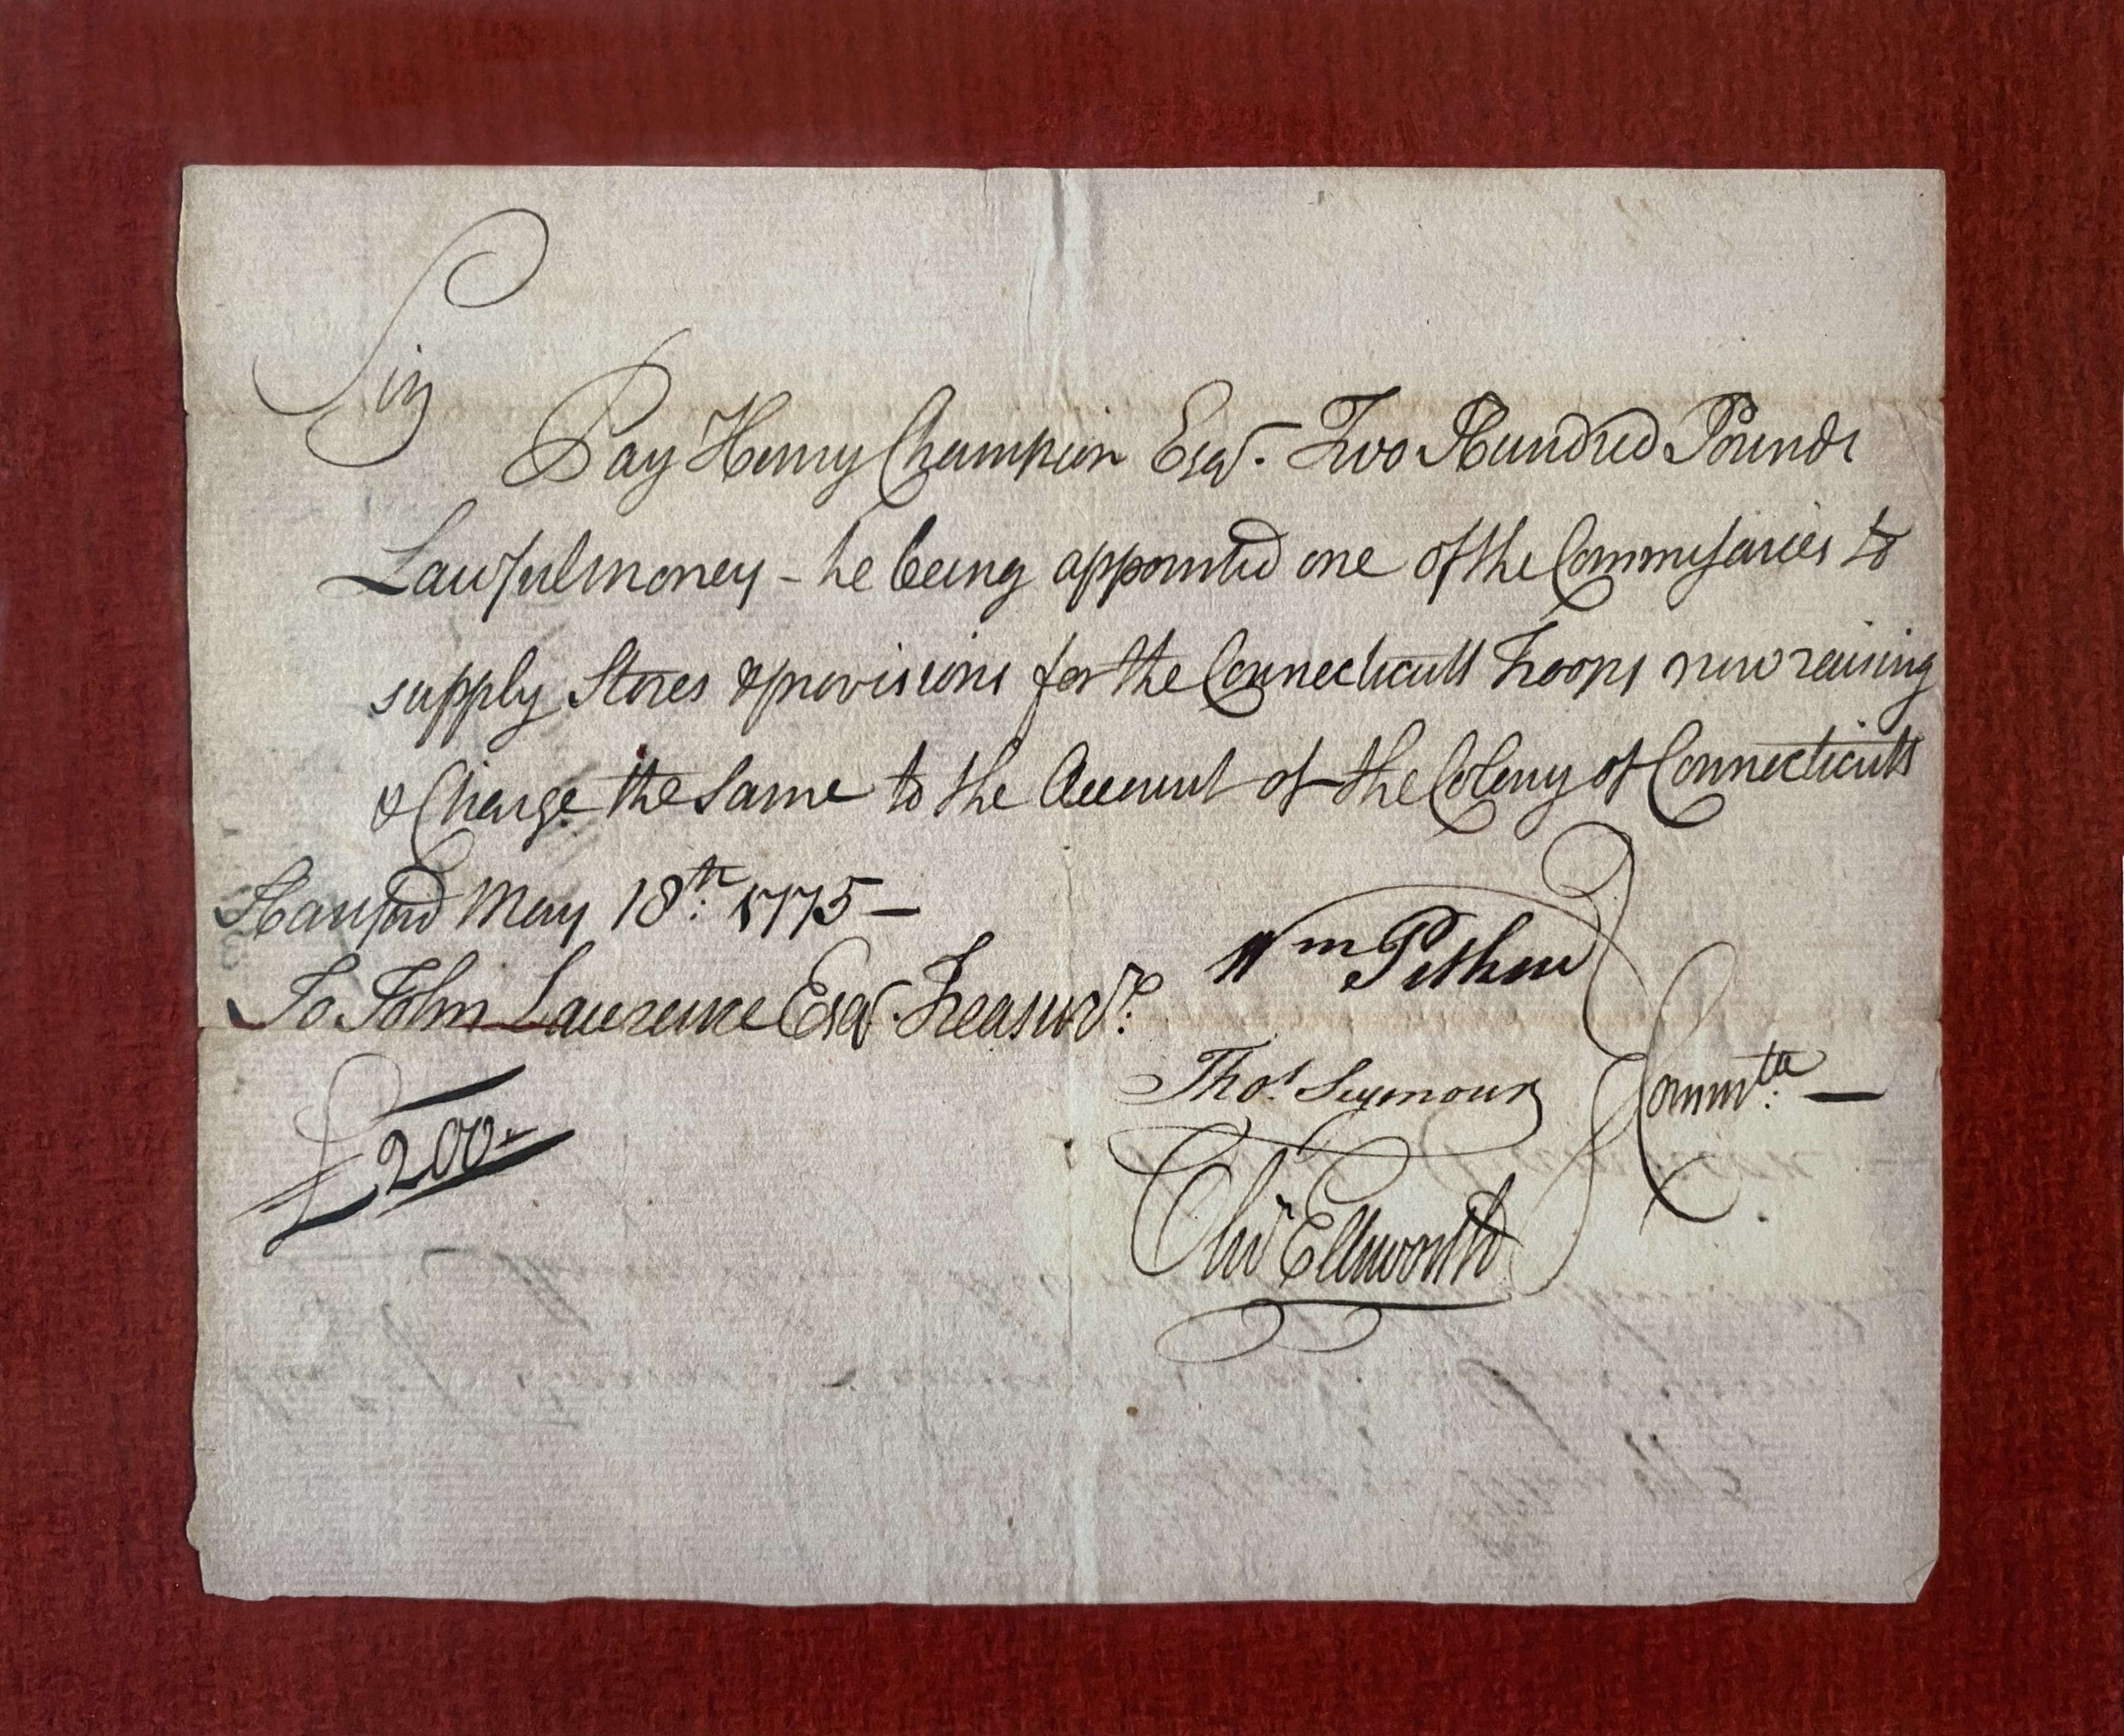 Sir
Pay Henry Champion Esqr. Two Hundred Pounds
Lawfulmoney - he being appointed one of the Commissaries to
supply Stores & provisions for the Connecticutt Troops now raising
& Charge the Same to the Account of the Colony of Connecticutt
Hartford May 18th: 1775 —
To John Lawrence Esqr. Treasurr:
Wm Pitkin
Thos. Seymour
Commtte: —
£200..
Olivr Ellsworth